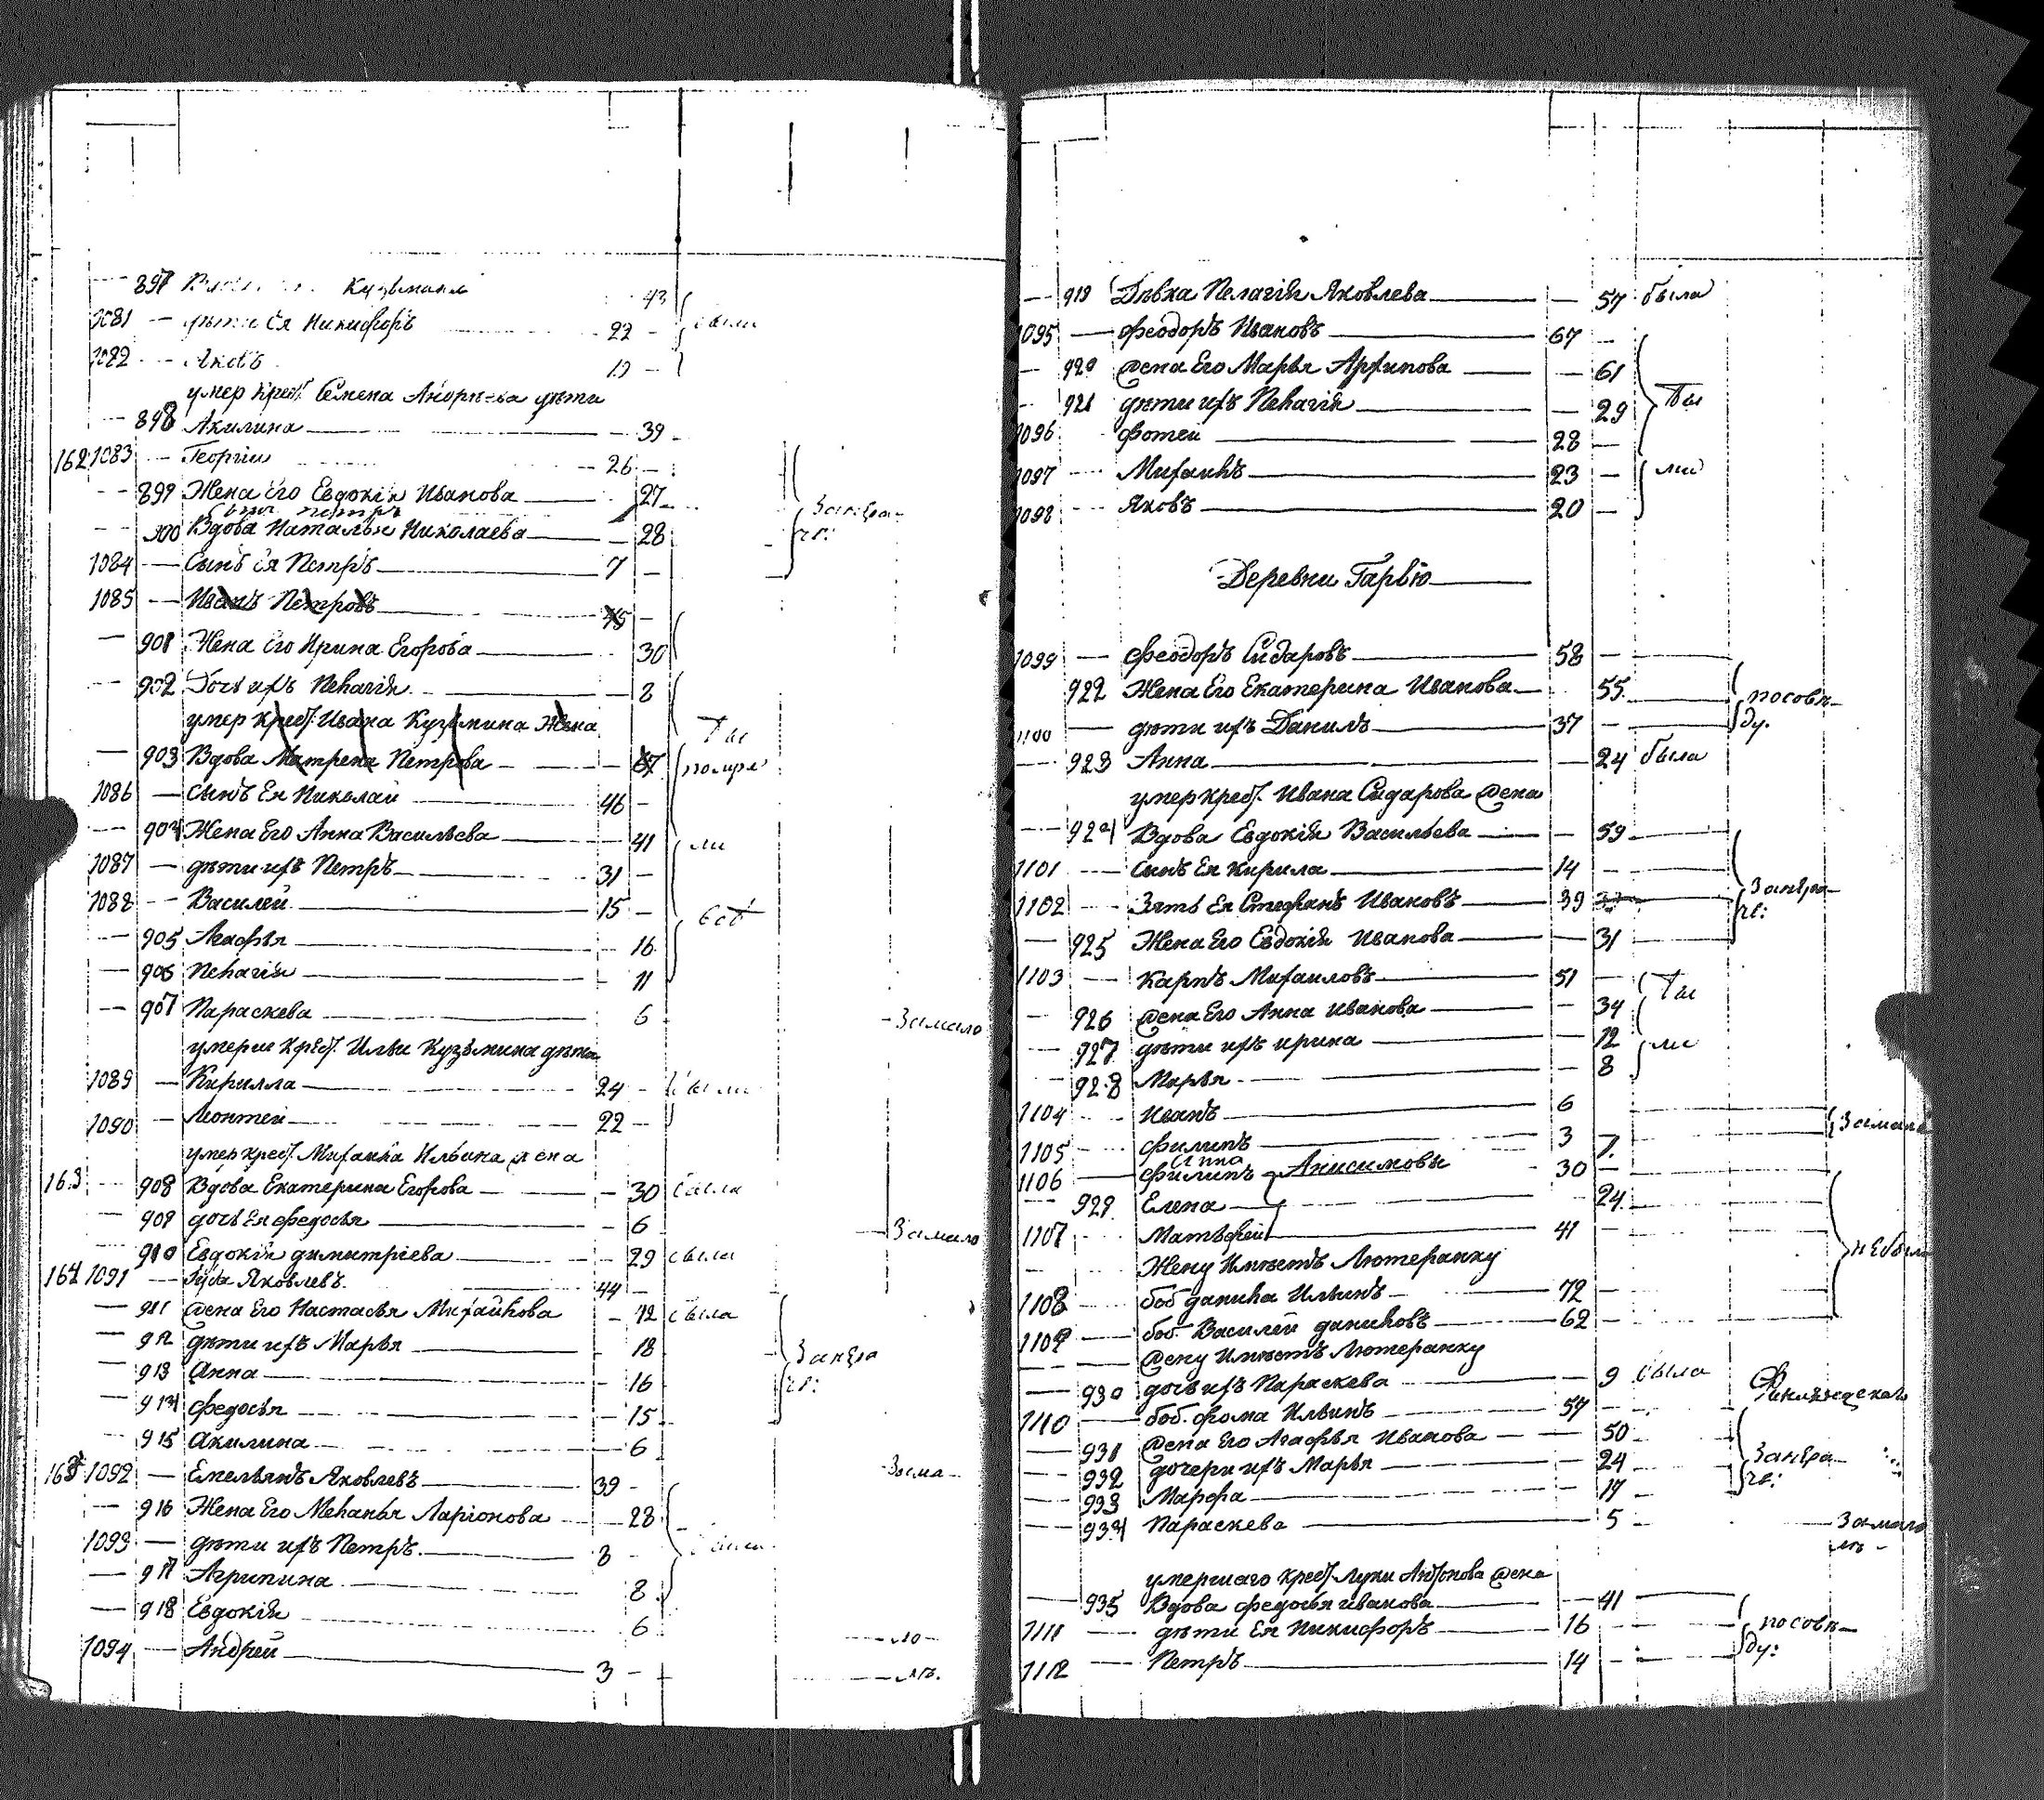 897 Кузьмина 43
1081 — дѣти Ея Никифоръ 22 — были
1082 — Яковъ —
умер крест. Семена Андреева дѣти
— 898 Акилина — 39
162 1083 — Георгіи 26 —
— 899 Жена его Евдокія Иванова — 27
Сынъ петръ
— 900 Вдова Наталья Николаева — 28
1084 — Сынъ ея Петръ 7 —
1085 — Иванъ Петровъ 45 —
— 901 Жена его Ирина Егорова — 30
— 902 Дочь ихъ Пелагія — 8
умер крест. Ивана Кузьмина Жена
— 903 Вдова Матрена Петрова — померла
1086 — Сынъ Ея Николай 46 —
— 904 Жена Его Анна Васильева — 41 ли
1087 — дѣти ихъ Петръ 31 —
1088 — Василей 15 —
— 905 Агафья — 16
— 906 Пелагія — 11
— 907 Параскева — 6 Замало
умерш крест. Ильи Кузьмина дѣти
1089 — Кирилла 24 — были
1090 — Леонтей 22 —
умер крест. Михаила Ильина жена
163 — 908 Вдова Екатерина Егорова — 30 была
— 909 дочь Ея Федосья — 6 Замало
— 910 Евдокія димитріева — 29 была
164 1091 — Яковлевъ 44 —
— 911 жена Его Настасья Михайлова — 42 была
— 912 дѣти ихъ Марья — 18
— 913 Анна — 16
— 914 Федосья — 15
— 915 Акилина — 6
165 1092 — Емельянъ Яковлевъ 39 —
— 916 Жена Его Меланья Ларіонова — 28
1093 — дѣти ихъ Петръ 8 —
— 917 Агрипина 8
— 918 Евдокія 6
1094 — Андрей 3 —
— 919 Дѣвка Пелагія Яковлева — 57 была
1095 — Феодоръ Ивановъ 67 —
— 920 жена Его Марья Архипова — 61
— 921 дѣти ихъ Пелагія — 29 бы
1096 Фотей 28 —
1097 Михаилъ 23 — ли
1098 Яковъ 20 —
Деревни Гарвю
1099 — Феодоръ Сидаровъ 58 —
922 Жена Его Екатерина Иванова 55 посовѣ
1100 — дѣти ихъ Данилъ 37 — ду.
— 923 Анна — 24 была
умер крест. Ивана Сидарова жена
— 924 Вдова Евдокія Васильева — 59
1101 — Сынъ Ея Кирила 14 —
1102 — Зять Ея Стефанъ Ивановъ 39
— 925 Жена Его Евдокія Иванова — 31
1103 — Карпъ Михаиловъ 51 — бы
— 926 жена Его Анна Иванова — 34
— 927 дѣти ихъ ирина — 12 ли
— 928 Марья — 8
1104 Иванъ 6
1105 — Филипъ 3
1106 — Филипъ Анисимовы 30 —
— 929 Елена 24
1107 Матвѣей 41 —
Жену Имѣетъ Лютеранку
1108 — боб данила Ильинъ 72 —
1109 — боб. Василей даниловъ 62 —
жену Имѣетъ Лютеранку
— 930 дочь ихъ Параскева — 9 была
1110 — боб. Фома Ильинъ 57 —
— 931 жена Его Агафья Иванова — 50
— 932 дочери ихъ Марья — 24
— 933 Марфа — 17
— 934 Параскева — 5 Замало
умершаго крест. Луки Антонова жена
— 935 Вдова Федосья иванова — 41
1111 — дѣти Ея Никифоръ 16 — посовѣ
1112 — Петръ 14 — ду: